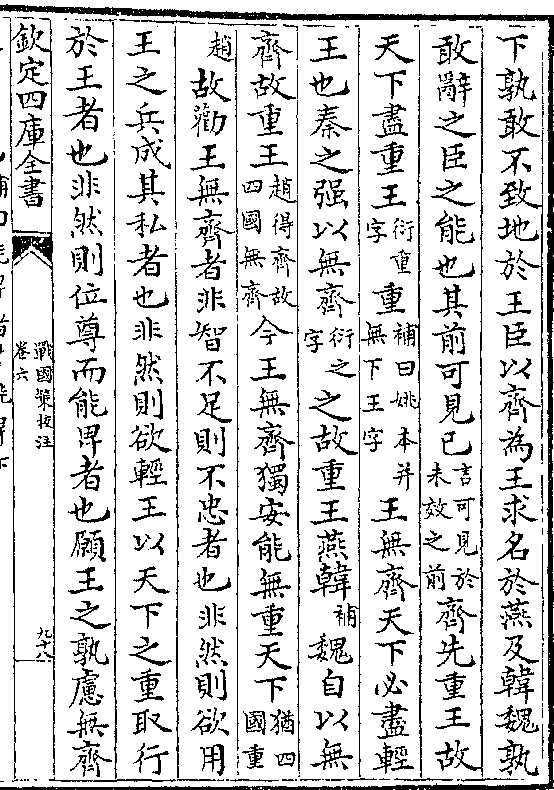 下孰敢不致地於王臣以齊為王求名於燕及韓魏孰
敢辭之臣之能也其前可見已言可見於未效之前齊先重王故
天下盡重王衍重字重補曰姚本并無下王字王無齊天下必盡輕
王也秦之强以無齊衍之字之故重王燕韓補魏自以無
齊故重王趙得齊故四國無齊今王無齊獨安能無重天下猶四國重
趙故勸王無齊者非智不足則不忠者也非然則欲用
王之兵成其私者也非然則欲輕王以天下之重取行
於王者也非然則位尊而能卑者也願王之孰慮無齊
欽定四庫全書
戰國策校注
卷六
九十八